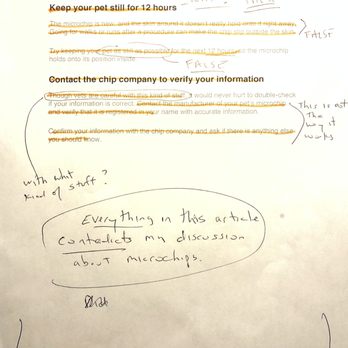 Keep your pet still for 12 hours
The microchip is new, and the skin around it doesn't really hold onto it right away.
Going for walks or runs after a procedure can make the chip slip outside the skin.
FALSE
Try keeping your pet as still as possible for the next 12 hours so the microchip
holds onto its position inside.
FALSE
Contact the chip company to verify your information
Though vets are careful with this kind of stuff, it would never hurt to double-check
if your information is correct. Contact the manufacturer of your pet's microchip
and verify that it is registered in your name with accurate information.
This is not
The
way it
works
Confirm your information with the chip company and ask if there is anything else
you should know.
with what
kind of stuff?
Everything in this article
contradicts my discussion
about microchips.